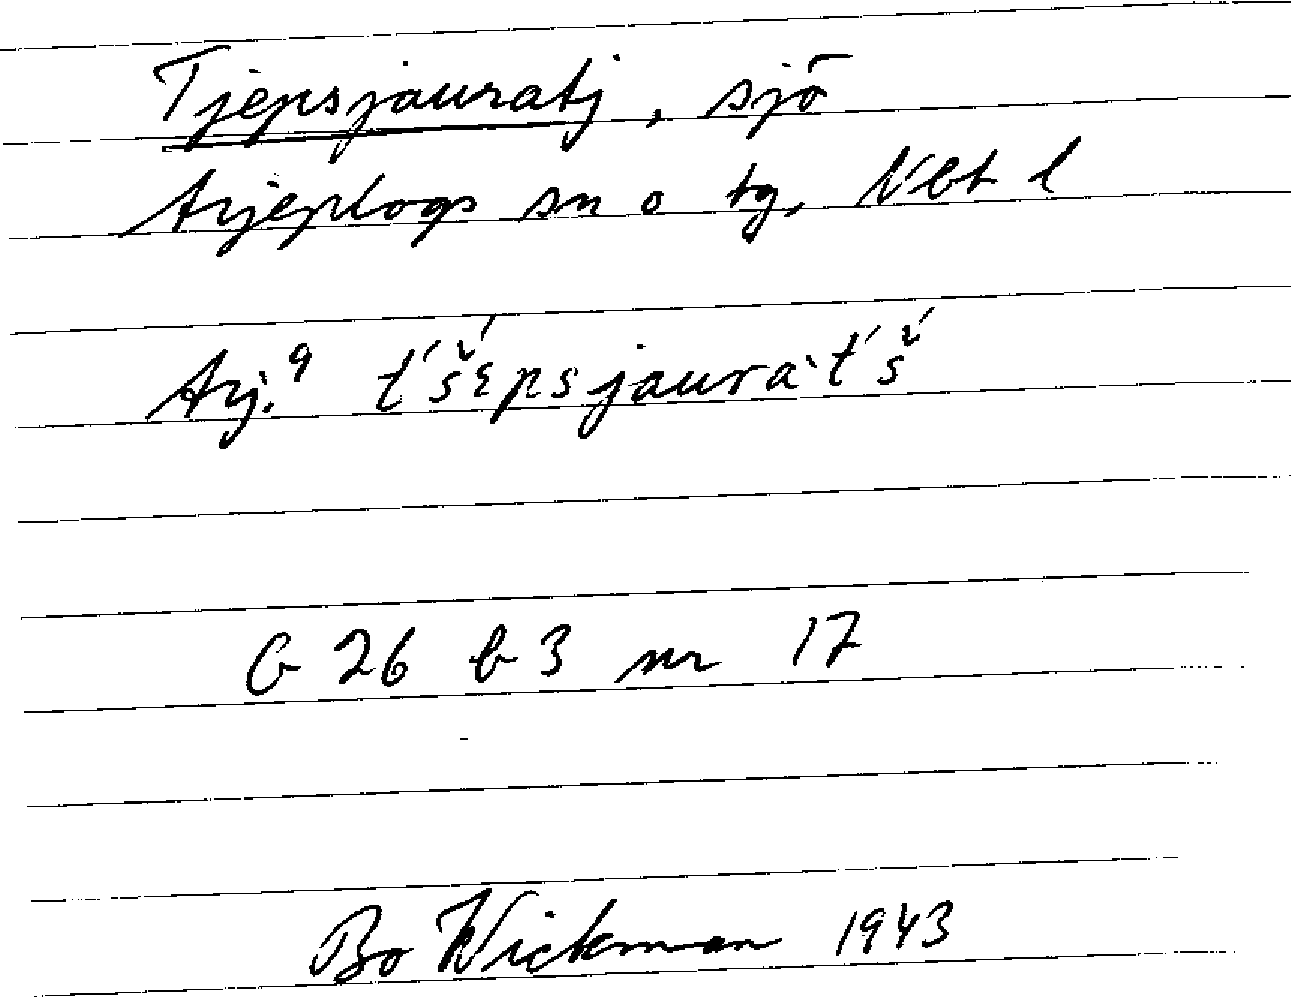 Tjepsjauratj, sjö
Arjeplogs sn o tg, Nbt l
Arj.9 t́š́ɛpsjauràt́š́
G 26 b 3 nr 17
Bo Wickman 1943